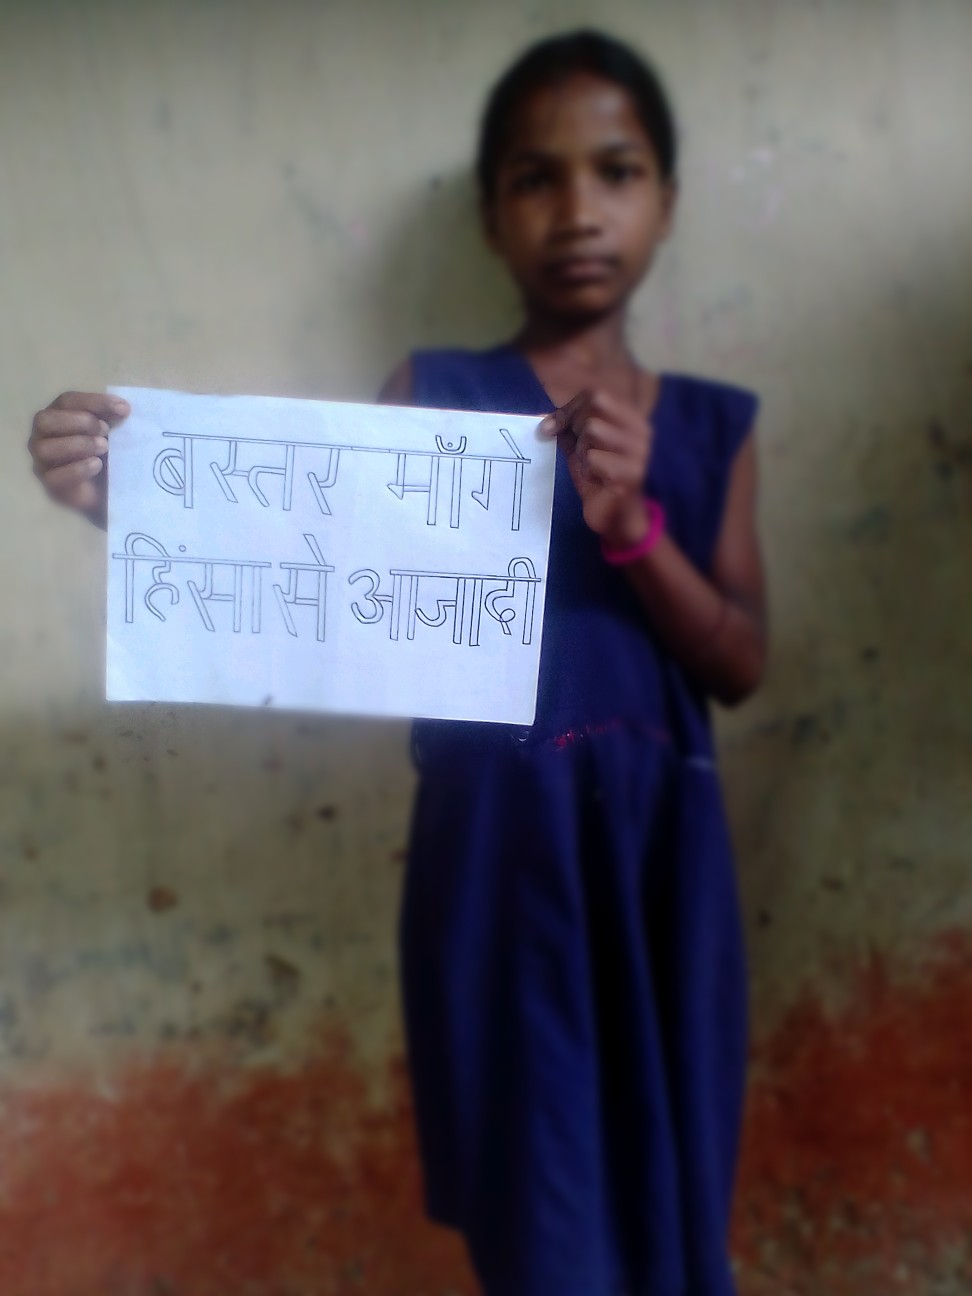 बस्तर माँगे
हिंसा से आजादी